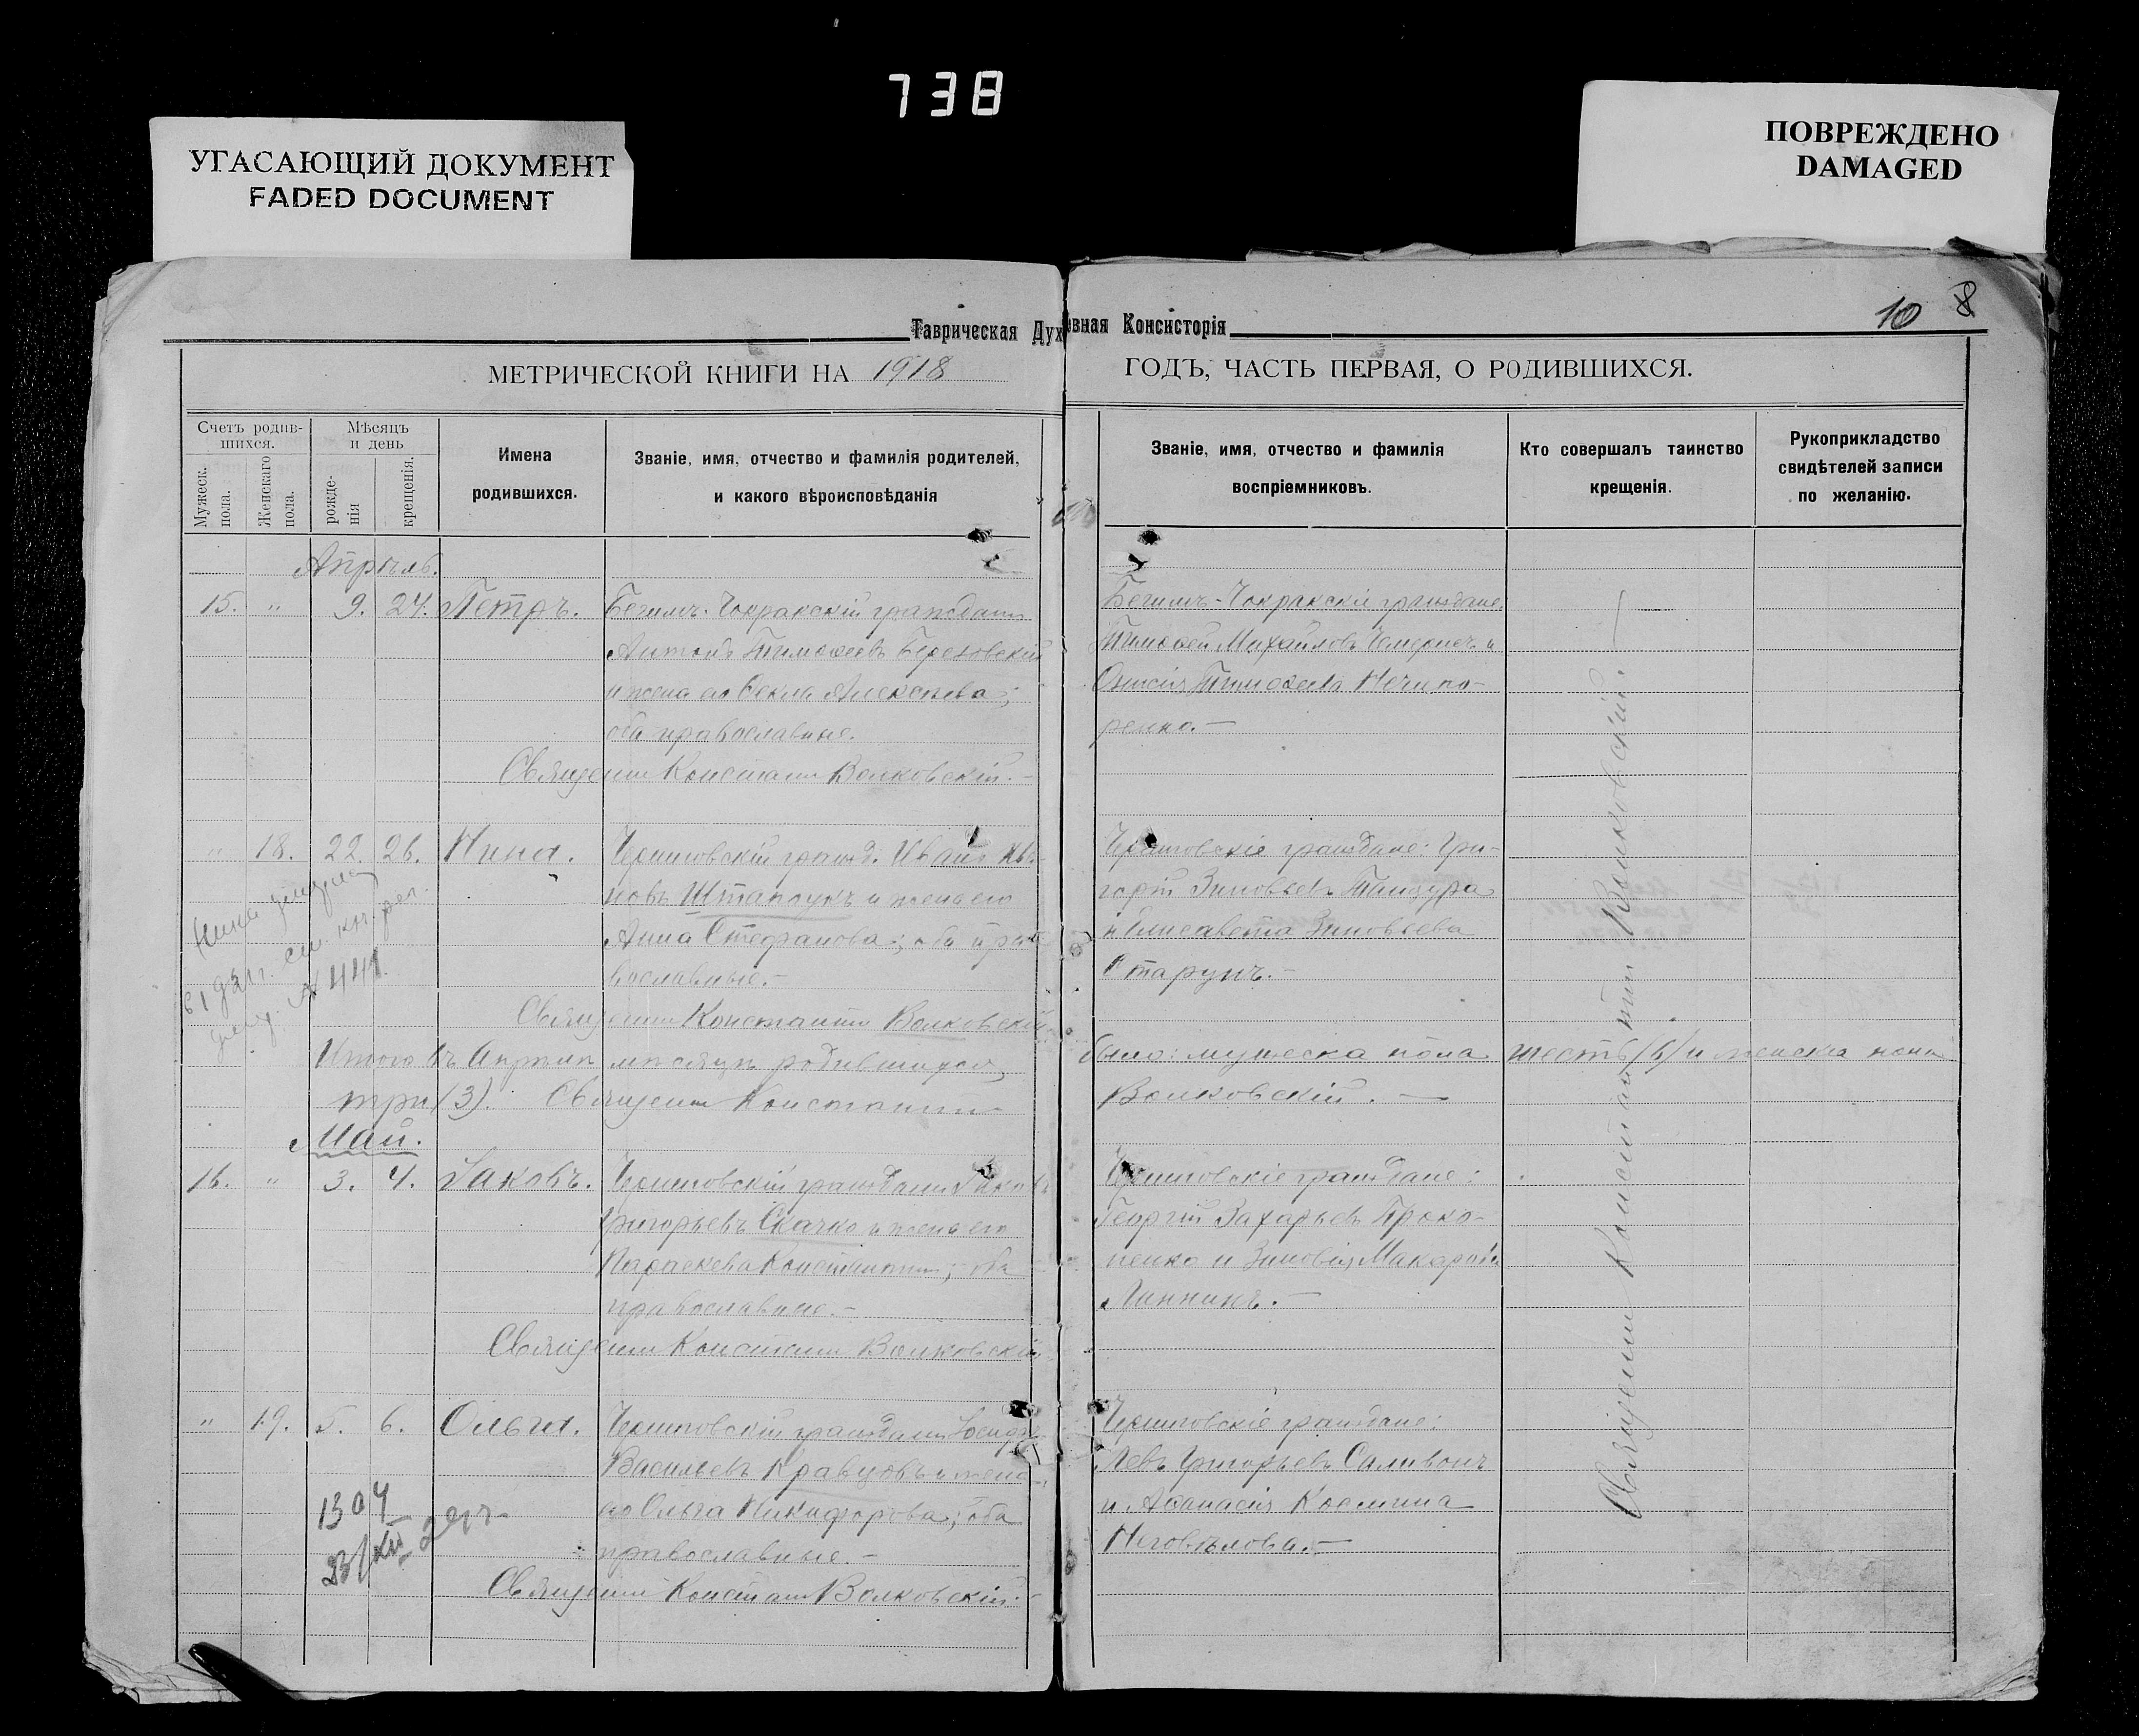 738
УГАСАЮЩИЙ ДОКУМЕНТ
FADED DOCUMENT
ПОВРЕЖДЕНО
DAMAGED
10 8
Таврическая Духовная Консисторія
МЕТРИЧЕСКОЙ КНИГИ НА 1918 ГОДЪ, ЧАСТЬ ПЕРВАЯ, О РОДИВШИХСЯ.
Счетъ родив-
шихся.
Мужеск.
пола.
Женскаго
пола.
Мѣсяцъ
и день
рожде-
нія
крещенія.
Имена
родившихся.
Званіе, имя, отчество и фамилія родителей,
и какого вѣроисповѣданія
Званіе, имя, отчество и фамилія
воспріемниковъ.
Кто совершалъ таинство
крещенія.
Рукоприкладство
свидѣтелей записи
по желанію.
Апрѣль.
15. " 9. 24. Петръ.
Бегимъ-Чокракскій гражданин
Антонъ Тимоѳеевъ Березовский
и жена его Ѳекла Алексѣева;
оба православные.
Священник Констант Волковскій.
Бегимъ-Чокракскіе граждане:
Тимоѳей Михайловъ и
Тимоѳеева Нечипо-
ренко.
" 18. 22. 26. Нина.
Черниговскій гражд. Иванъ
новъ Штапаукъ и жена его
Анна Стефанова; оба пра-
вославные.
Священник Константин Волковский
Черниговскіе граждане: Гри-
горій Зиновьевъ Танцура
и Елисавета Зиновьева
Старунъ.
Нина
в 1921г. см. кн. рег.
№ 441.
Итого въ Апрѣлѣ мѣсяцѣ родившихся было: мужеска пола шесть (6) и женска пола
три (3). Священник Константин Волковскій.
Май.
16. " 3. 4. Іаковъ.
Черниговскій гражданин Іаковъ
Григорьевъ Скачко и жена его
Параскева Константин; оба
православные.
Священник Констант Волковскій
Черниговскіе граждане:
Георгій Захарьевъ Проко-
пенко и Зиновія Макарова
Линникъ.
" 19. 5. 6. Ольга.
Черниговскій гражданин
Васильевъ Кравцовъ и жена
его Ольга Никифорова; оба
православные.
Священник Констант Волковскій.
Черниговскіе граждане:
Левъ Григорьевъ Саливонъ
и Аѳанасія Космина
Неговѣлова.
1304
23/XII
Священник Константин Волковский.